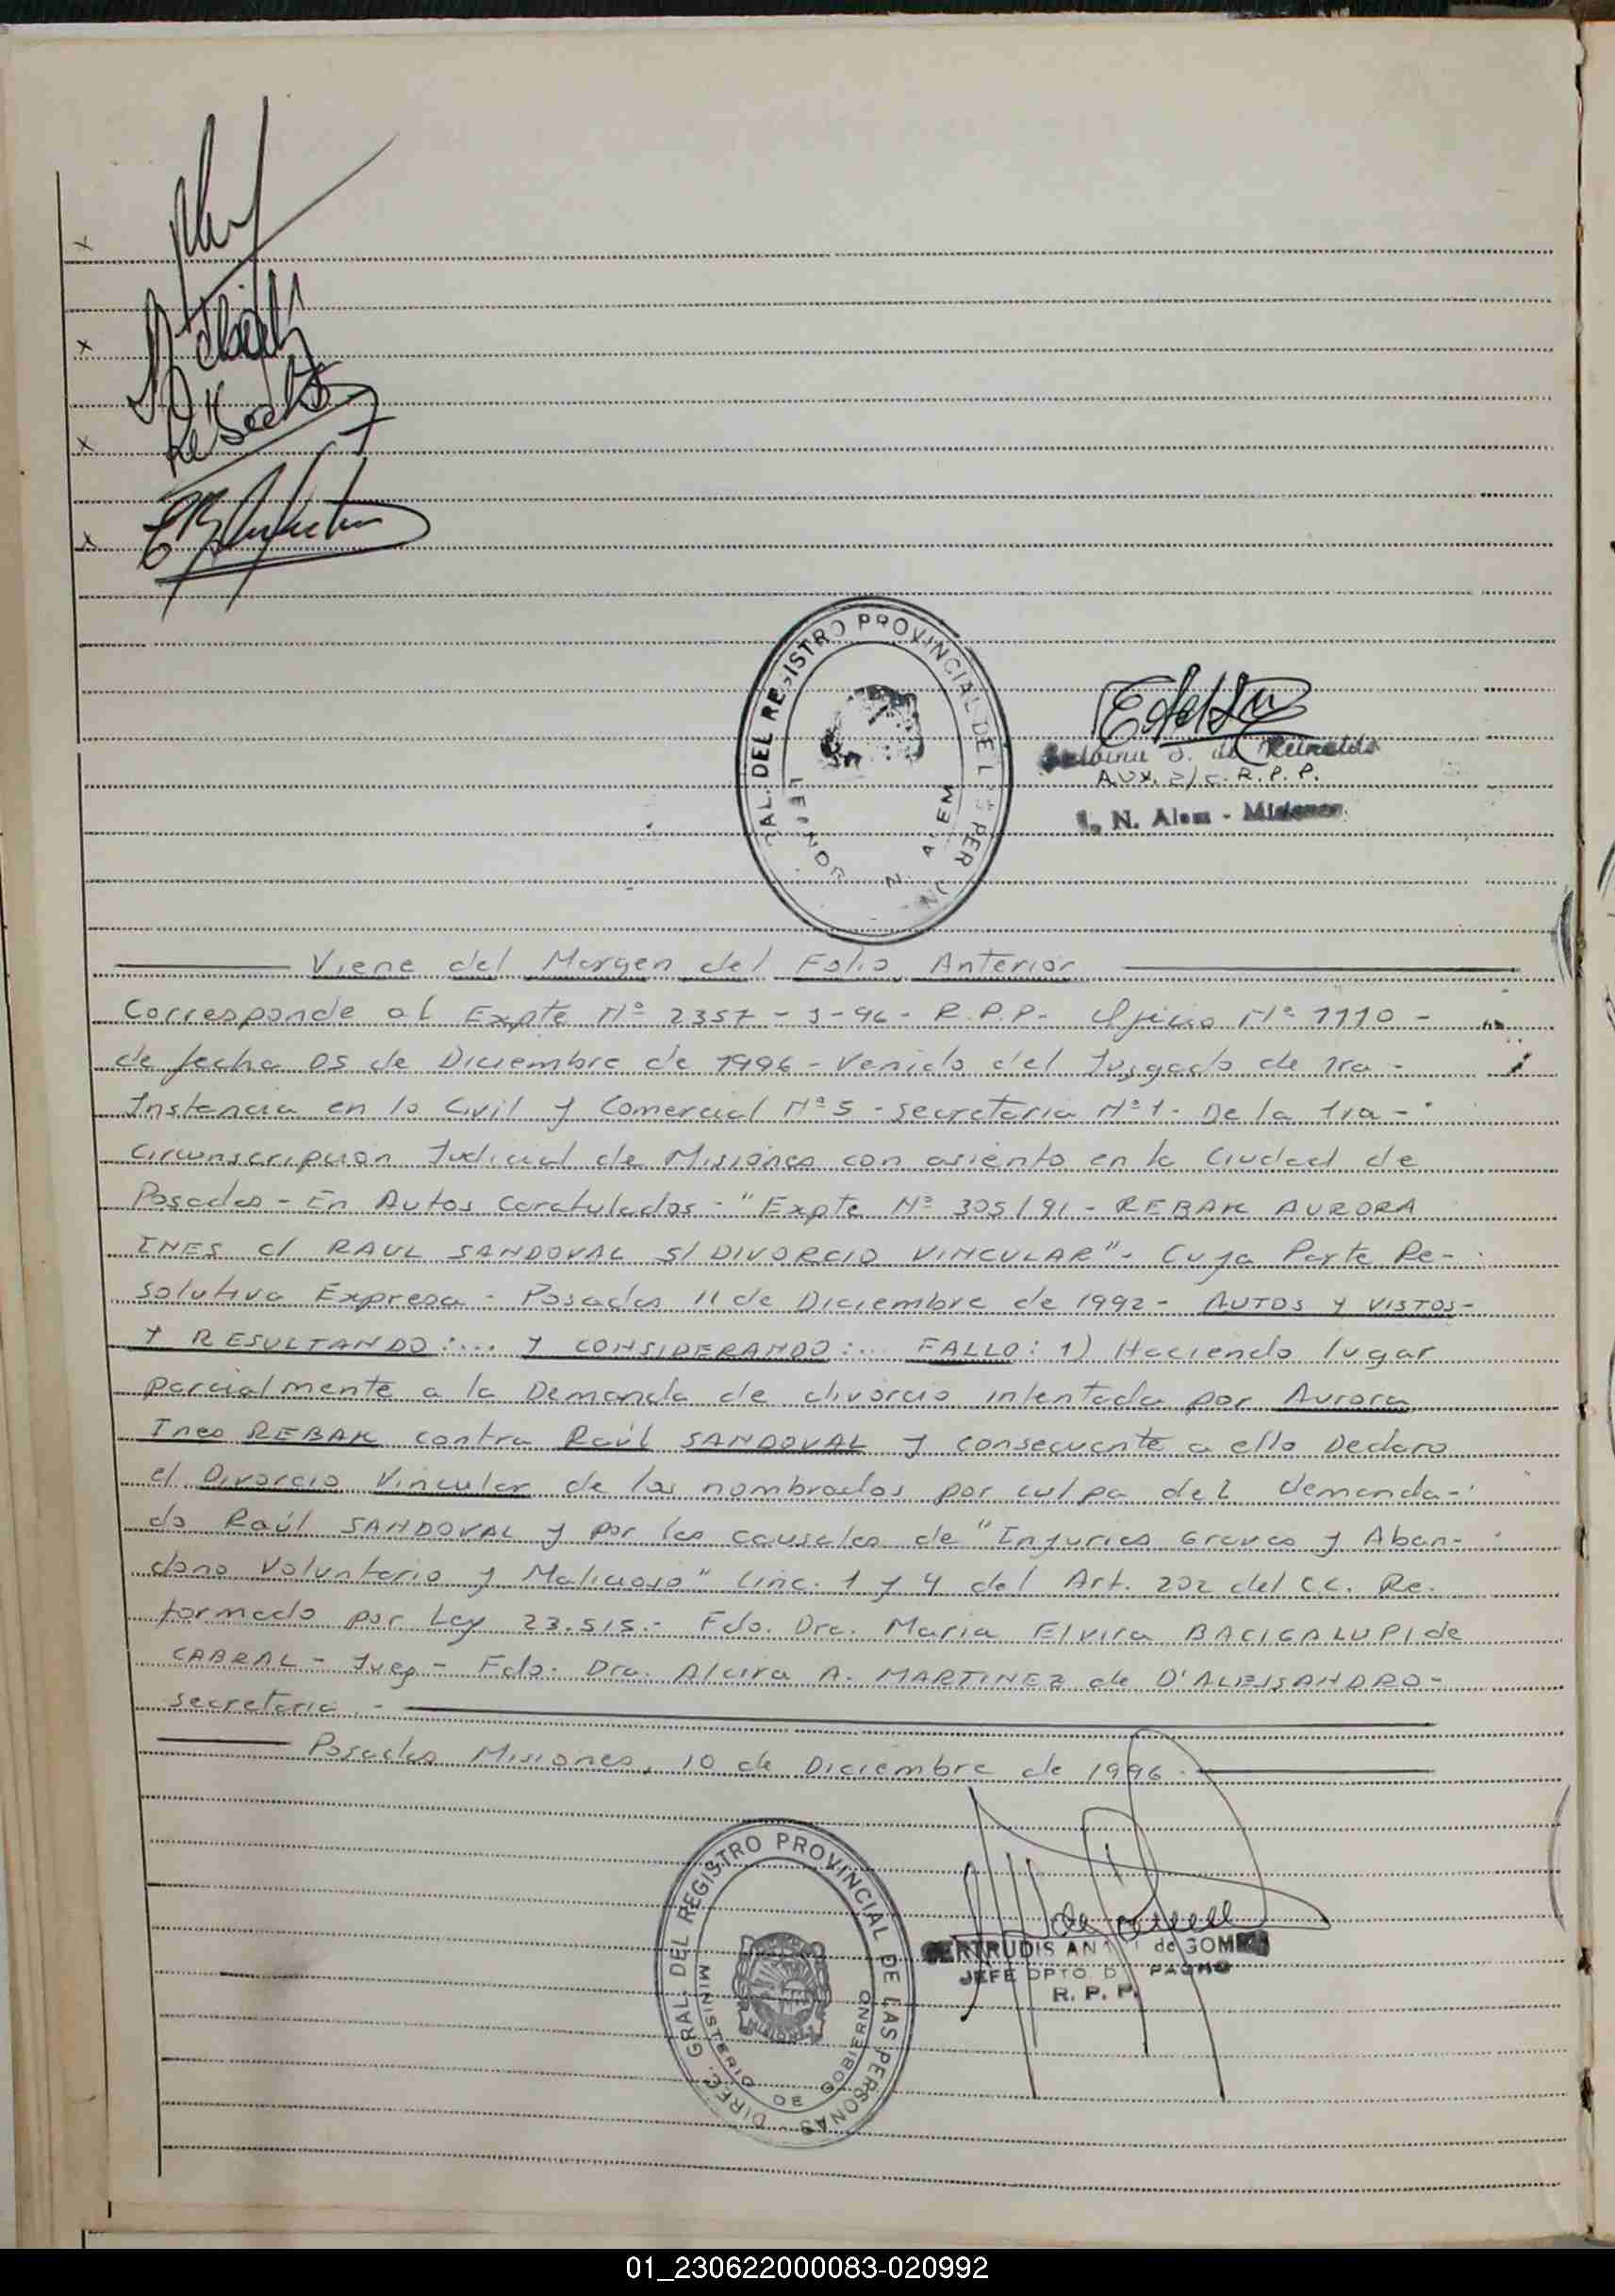 DEL REGISTRO PROVINCIAL DE L PER
ALEM
de Reinaldo
AUX. R.P.P.
L. N. Alem - Misiones
Viene del Margen del Folio Anterior
Corresponde al Expte Nº 2357 - J-96 - R.P.P.- Oficio Nº 1110 -
de fecha 05 de Diciembre de 1996 - Venido del Juzgado de 1ra -
Instancia en lo Civil y Comercial Nº 5 - Secretaria Nº 1 - De la 1ra -
Circunscripcion Judicial de Misiones con asiento en la Ciudad de
Posadas - En Autos Caratulados - "Expte Nº 305/91 - REBAK AURORA
INES c/ RAUL SANDOVAL S/ DIVORCIO VINCULAR" - Cuya Parte Re-
solutiva Expresa - Posadas 11 de Diciembre de 1992 - AUTOS Y VISTOS -
Y RESULTANDO:... Y CONSIDERANDO:... FALLO: 1) Haciendo lugar
parcialmente a la Demanda de divorcio intentada por Aurora
Ines REBAK contra Raúl SANDOVAL y consecuente a ello Declaro
el Divorcio Vincular de los nombrados por culpa del demanda-
do Raúl SANDOVAL y por las causales de "Injurias Graves y Aban-
dono Voluntario y Malicioso" (inc. 1 y 4 del Art. 202 del C.C. Re-
formado por Ley 23.515.- Fdo. Dra. Maria Elvira BACIGALUPI de
CABRAL - Juez - Fdo. Dra. Alcira A. MARTINEZ de D'ALESSANDRO -
secretaria. -
Posadas Misiones, 10 de Diciembre de 1996 -
DIREC. GRAL. DEL REGISTRO PROVINCIAL DE LAS PERSONAS
MINISTERIO DE GOBIERNO
MISIONES
GERTRUDIS de GOMEZ
JEFE DPTO.
R. P. P.
01_230622000083-020992